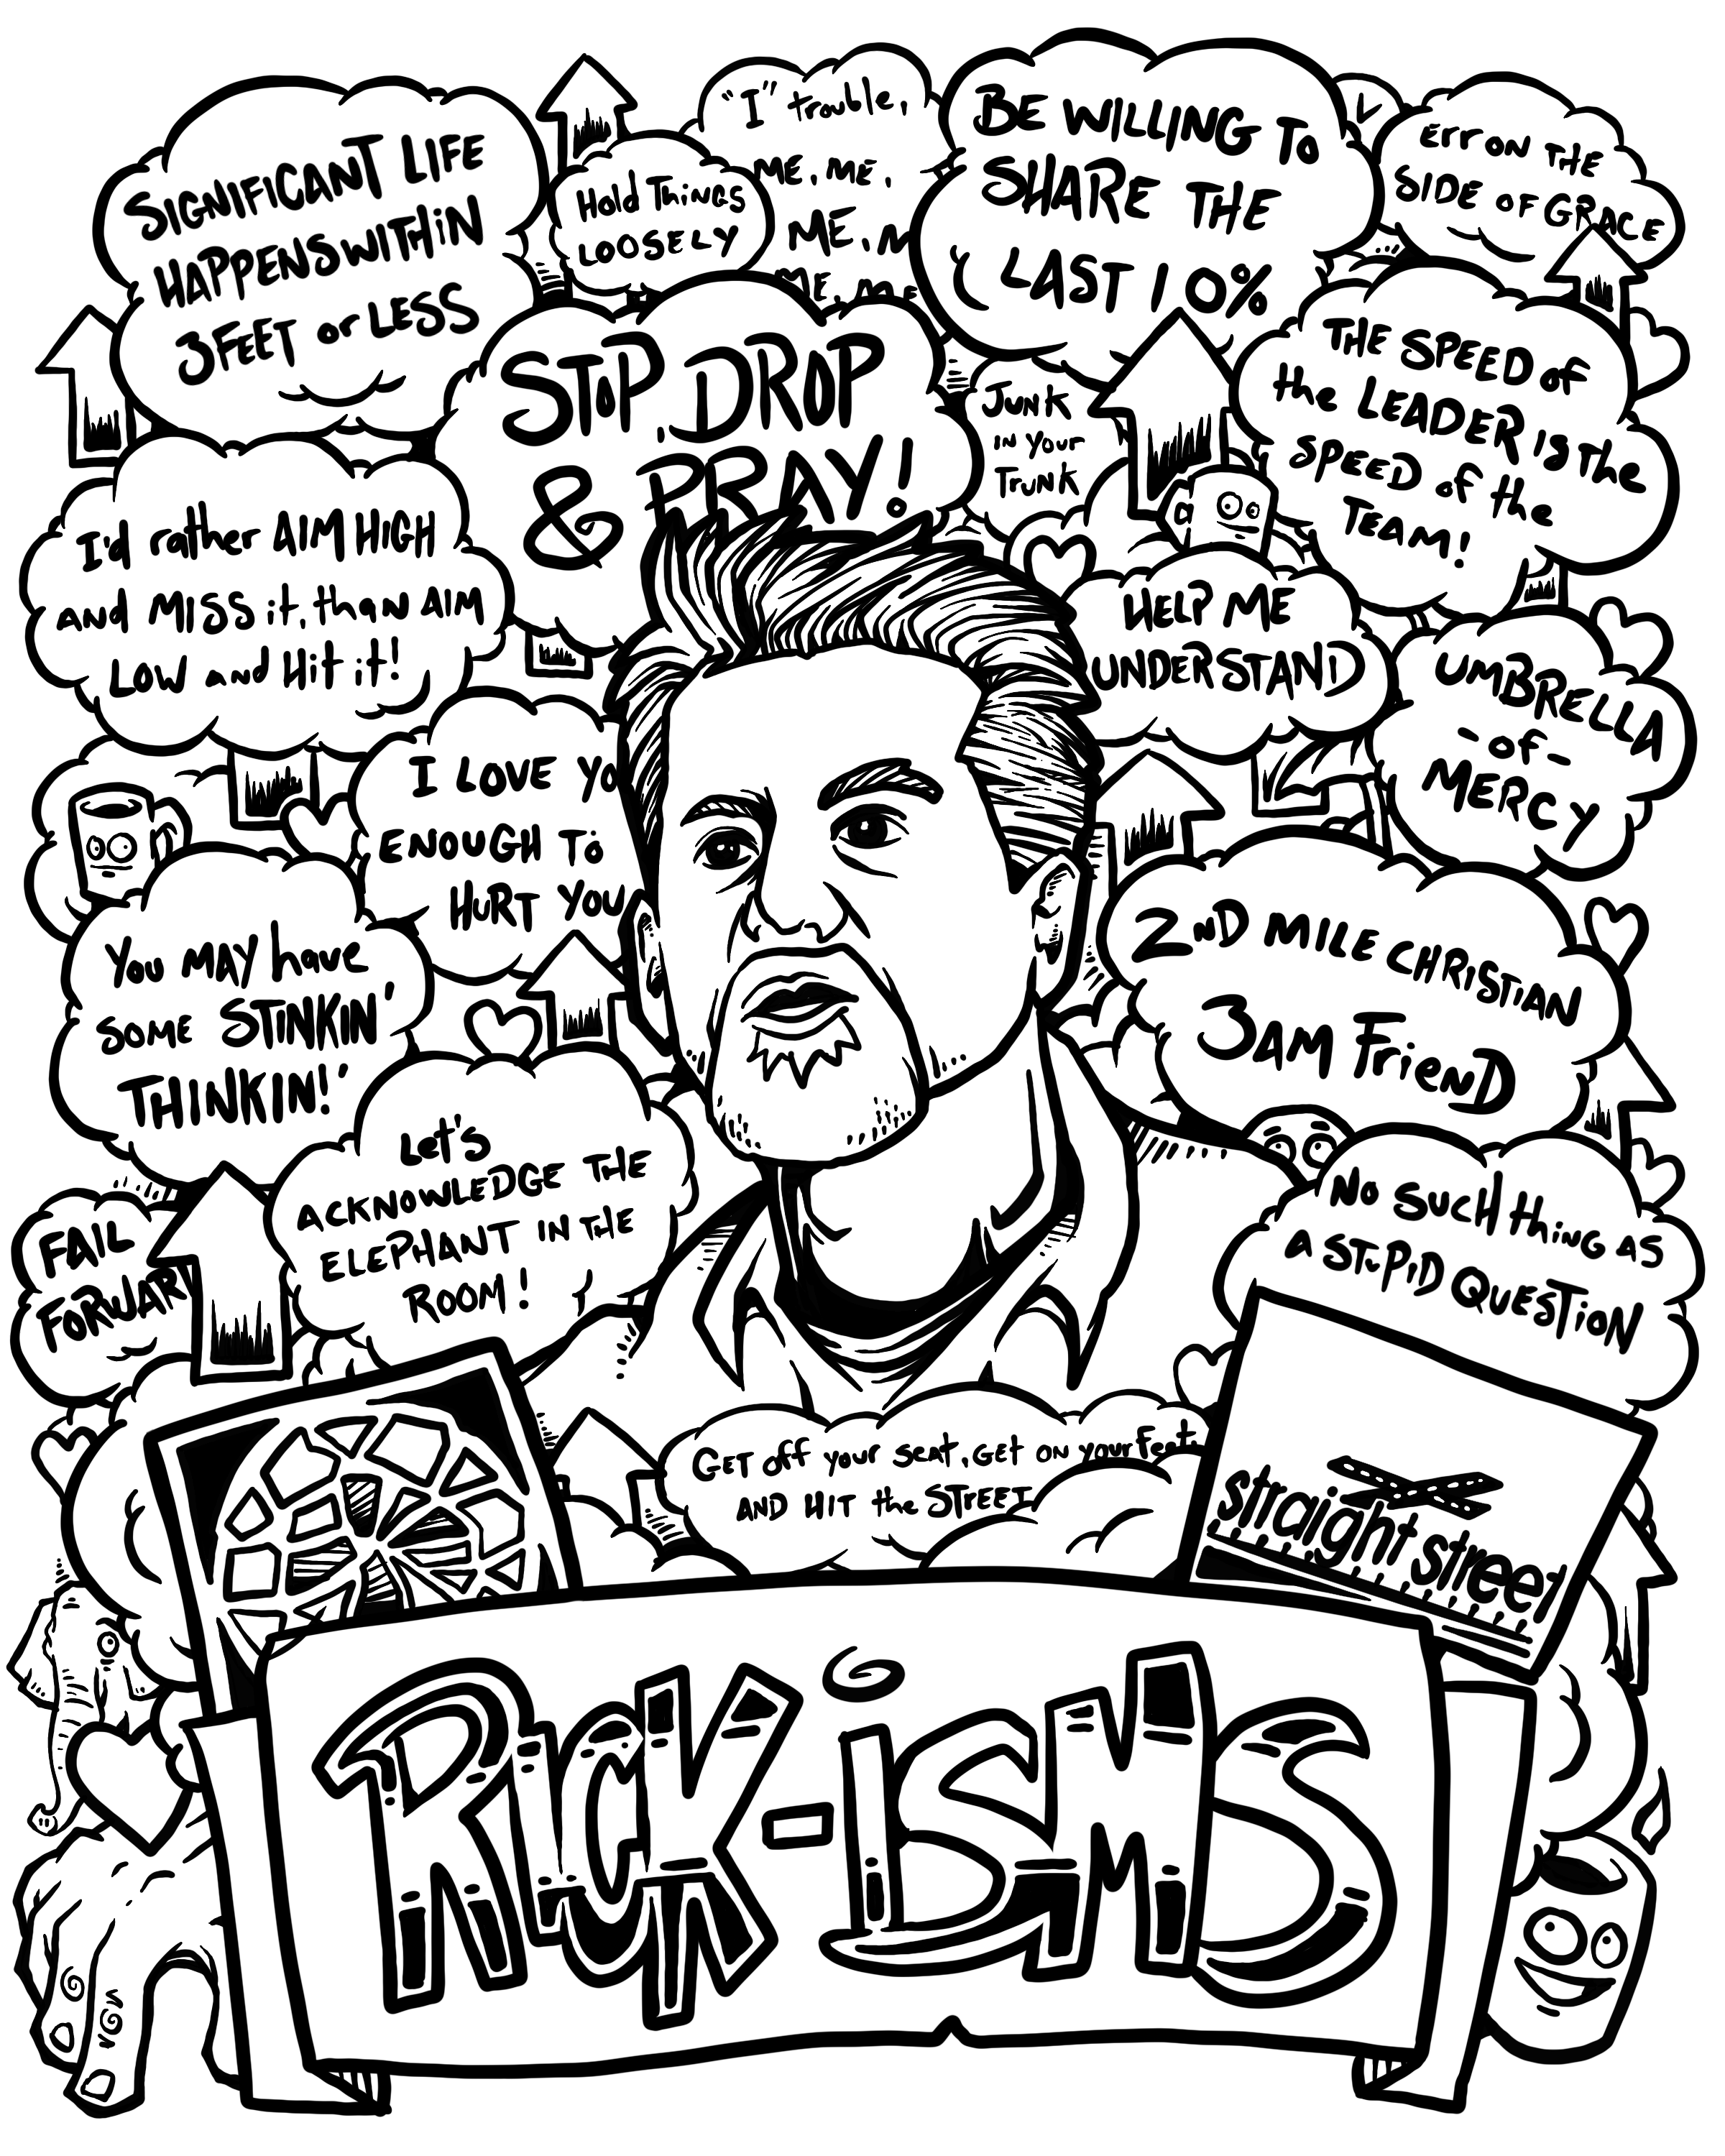 SIGNIFICANT LIFE
HAPPENS WITHIN
3 FEET or LESS
"I" trouble,
ME, ME,
ME, M
ME, ME
Hold Things
LOOSELY
BE WILLING TO
SHARE THE
LAST 10%
Err ON THE
SIDE OF GRACE
STOP, DROP
& PRAY!
JUNK
IN Your
Trunk
THE SPEED of
the LEADER IS the
SPEED of the
TEAM!
I'd rather AIM HIGH
and MISS it, than AIM
LOW and Hit it!
HELP ME
UNDERSTAND
UMBRELLA
-of-
MERCY
I LOVE YO
ENOUGH TO
HURT YOU
You MAY have
SOME STINKIN'
THINKIN!'
2ND MILE CHRISTIAN
3AM FrieND
Let's
ACKNOWLEDGE THE
ELEPHANT IN THE
ROOM!
FAIL
FORWAR
No SUCH thiNG AS
A STuPiD QUESTiON
GET off your seat, GET ON your Feet,
AND HIT the STREET
straight street
RICK-iSMS